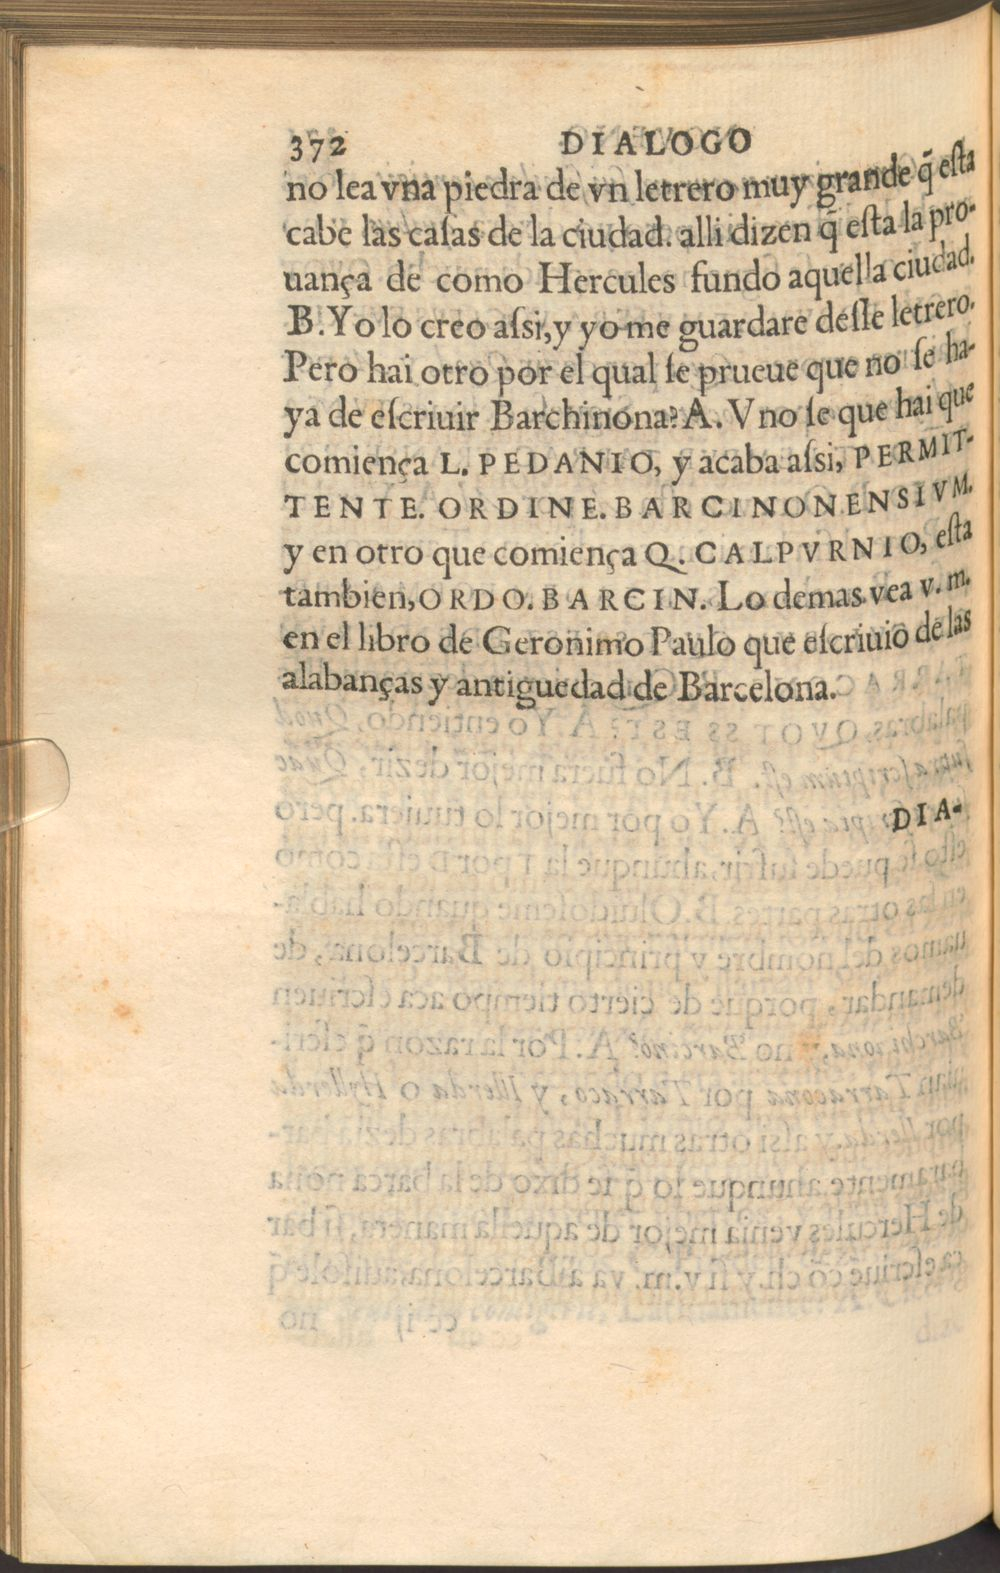 372 DIALOGO
no lea vna piedra de vn letrero muy grande q̃ eſta
cabe las caſas de la ciudad. alli dizen q̃ eſta la pro-
uança de como Hercules fundo aquella ciudad.
B. Yo lo creo aſsi, y yo me guardare deſſe letrero.
Pero hai otro por el qual ſe prueue que no ſe ha-
ya de eſcriuir Barchinona? A. Vno ſe que hai que
comiença L. PEDANIO, y acaba aſsi, PERMIT-
TENTE. ORDINE. BARCINONENSIVM.
y en otro que comiença Q. CALPVRNIO, eſta
tambien, ORDO. BARCIN. Lo demas vea v. m.
en el libro de Geronimo Paulo que eſcriuio de las
alabanças y antiguedad de Barcelona.
DIA-